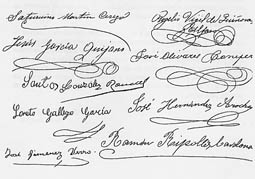 Saturnino Martín Cerezo
Rogelio Vigil de Quiñones
Alfaro
Jesús García Quijano
José Olivares Conejero
Santos González Roncal
Loreto Gallego García
José Hernández Arocha
Ramón Ripollés Cardona
José Jiménez Berro